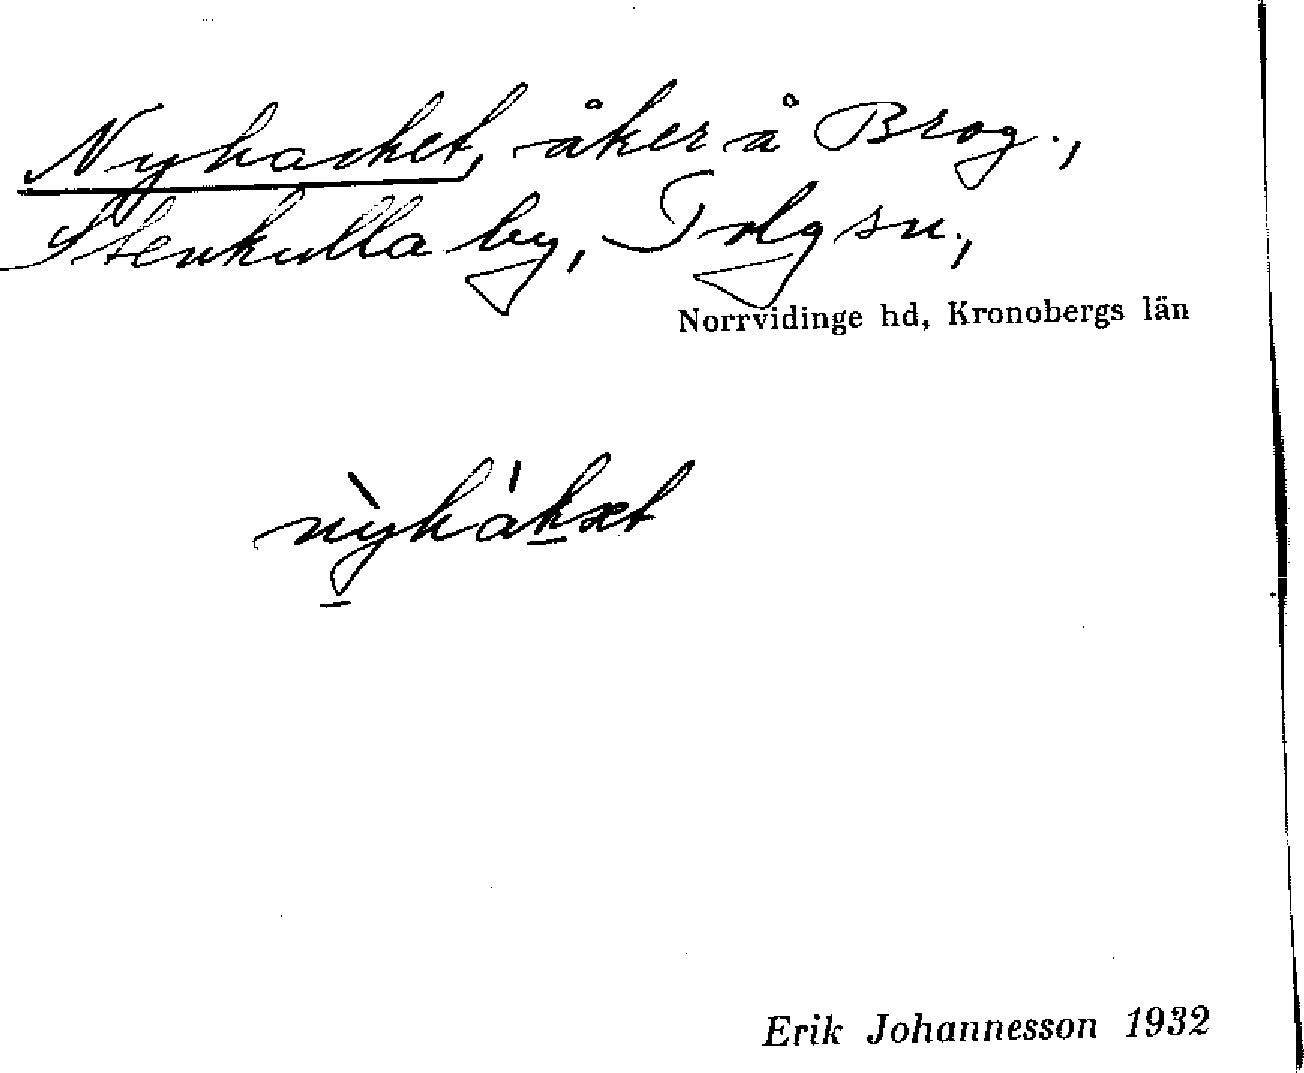 Nyhacket, åker å Brog.,
Stenkulla by, Tolg sn.,
Norrvidinge hd, Kronobergs län
nỳhákæt
Erik Johannesson 1932